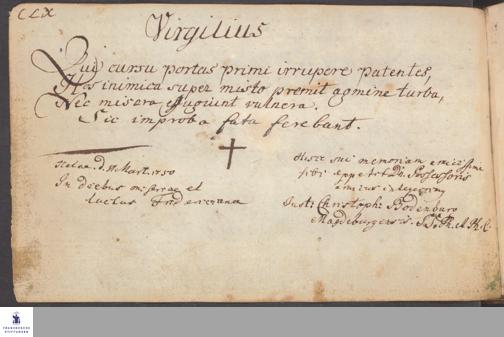 CLX
Virgilius
Qui cursu portas primi irrupere patentes,
Hos inimica super misto premit agmine turba,
Nec misera effugiunt vulnera.
Sic improba fata ferebant.
d. Mart. 1750
In diebus miseriae et
luctus
Hisce sui memoriam
sibi Possessoris
amicus
Just: Christoph: Bodenburg
Magdeburgensis.
FRANCKESCHE
STIFTUNGEN